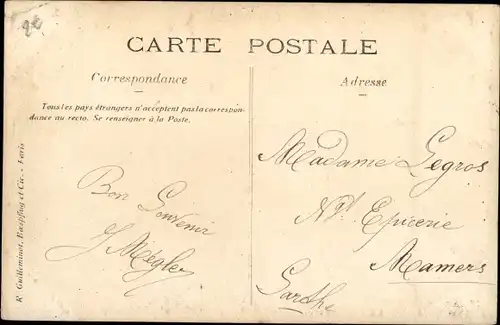 CARTE POSTALE
Correspondance
Adresse
Tous les pays étrangers n'acceptent pas la correspon-
dance au recto. Se renseigner à la Poste.
Bon Souvenir
Madame Legros
Nt Epicerie
Mamers
Sarthe
R. Guilleminot, Bœspflug et Cie. - Paris